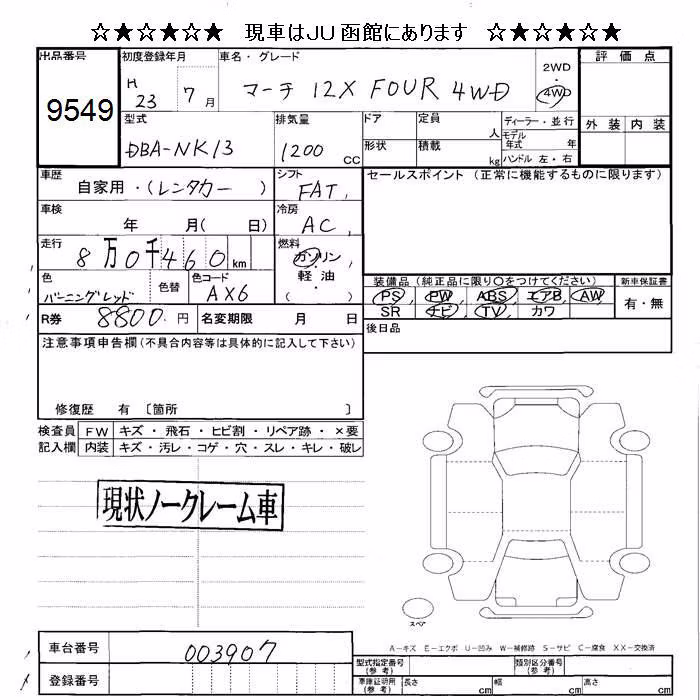 ☆★☆★☆★ 現車はJU函館にあります ☆★☆★☆★
出品番号 初度登録年月 車名・グレード 評価点
9549 H 23 7月 マーチ 12X FOUR 4WD 2WD・4WD
型式 排気量 ドア 定員 ディーラー・並行 外装 内装
DBA-NK13 1200 CC 人 モデル年式 年
形状 積載 kg ハンドル 左・右
車歴 シフト セールスポイント (正常に機能するものに限ります)
自家用・(レンタカー) FAT
車検 冷房
年 月( 日) AC
走行 燃料
8万0千460km ガソリン・軽油・( )
色 色替 色コード 装備品 (純正品に限り○をつけてください) 新車保証書
バーニングレッド AX6 PS PW ABS エアB AW 有・無
R券 8800円 名変期限 月 日 SR ナビ TV カワ
注意事項申告欄(不具合内容等は具体的に記入して下さい) 後日品
修復歴 有 〔箇所 〕
検査員 FW キズ・飛石・ヒビ割・リペア跡・×要
記入欄 内装 キズ・汚レ・コゲ・穴・スレ・キレ・破レ
現状ノークレーム車
スペア
A-キズ E-エクボ U-凹み W-補修跡 S-サビ C-腐食 XX-交換済
車台番号 003907
型式指定番号(参考) 類別区分番号(参考)
登録番号 車庫証明用(参考) 長さ cm 幅 cm 高さ cm